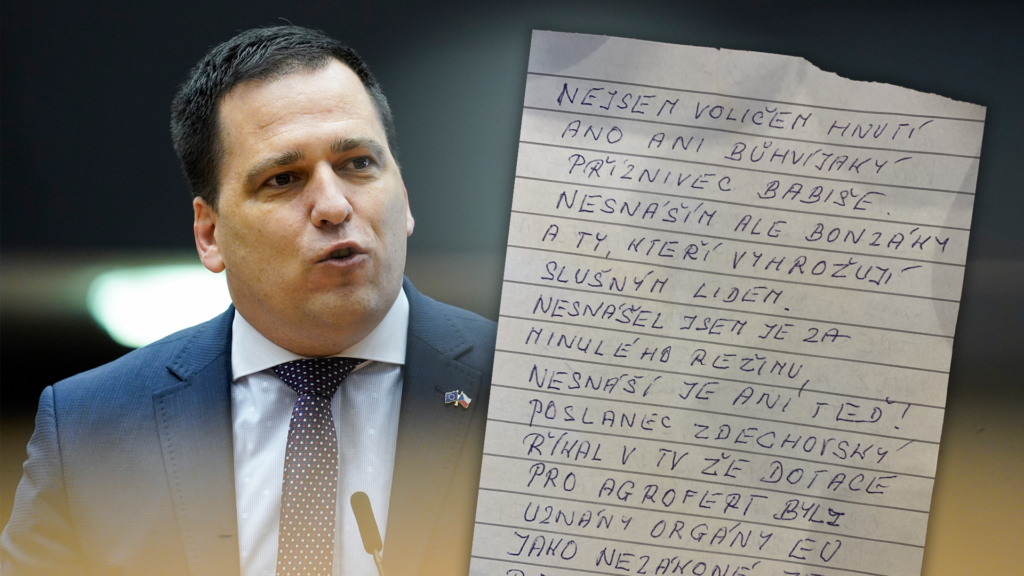 NEJSEM VOLIČEM HNUTÍ
ANO ANI BŮHVÍJAKÝ
PŘÍZNIVEC BABIŠE.
NESNÁŠÍM ALE BONZÁKY
A TY, KTEŘÍ VYHROŽUJÍ
SLUŠNÝM LIDEM.
NESNÁŠEL JSEM JE ZA
MINULÉHO REŽIMU,
NESNÁŠÍ JE ANI TEĎ!
POSLANEC ZDECHOVSKÝ
ŘÍKAL V TV ŽE DOTACE
PRO AGROFERT BYLY
UZNÁNY ORGÁNY EU
JAKO NEZÁKONÉ